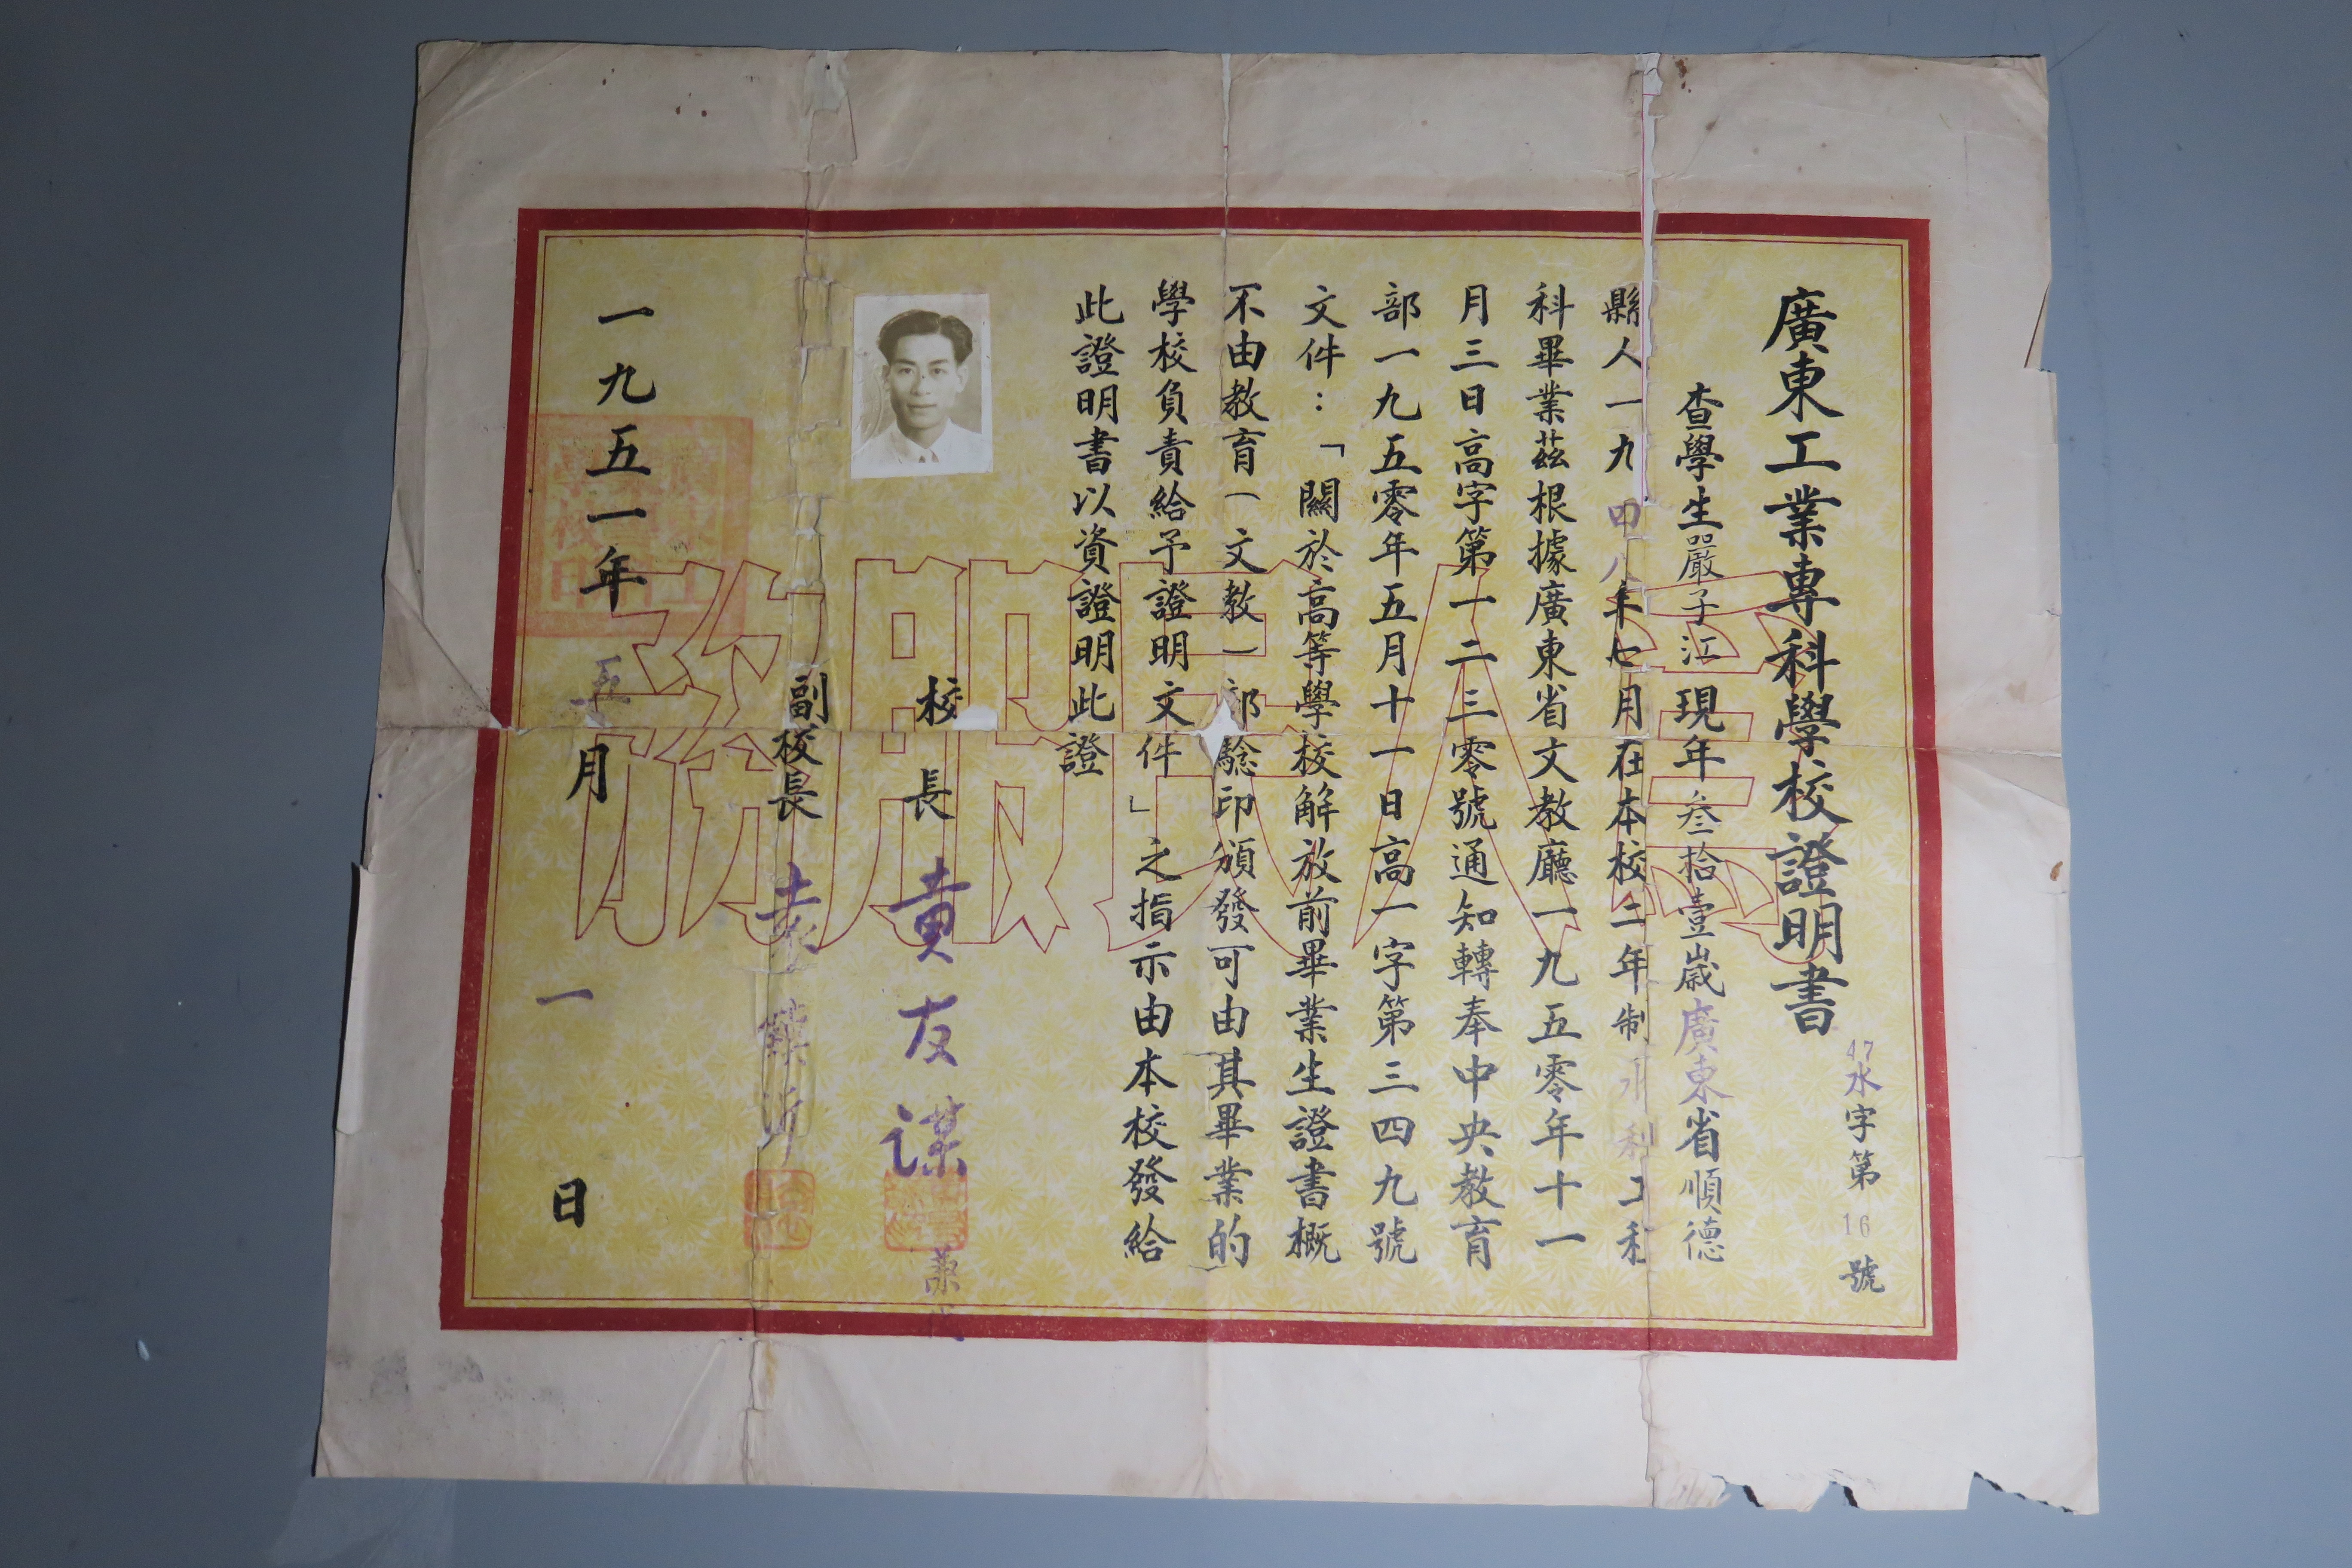 廣東工業專科學校證明書
47水字第16號
查學生嚴子江現年叁拾壹歲廣東省順德
縣人一九四八年七月在本校三年制水利工程
科畢業茲根據廣東省文教廳一九五零年十一
月三日高字第一二三零號通知轉奉中央教育
部一九五零年五月十一日高一字第三四九號
文件：「關於高等學校解放前畢業生證書概
不由教育(文教)部驗印頒發可由其畢業的
學校負責給予證明文件」之指示由本校發給
此證明書以資證明此證
校長 黄友谋
副校長
一九五一年五月一日
為人民服務